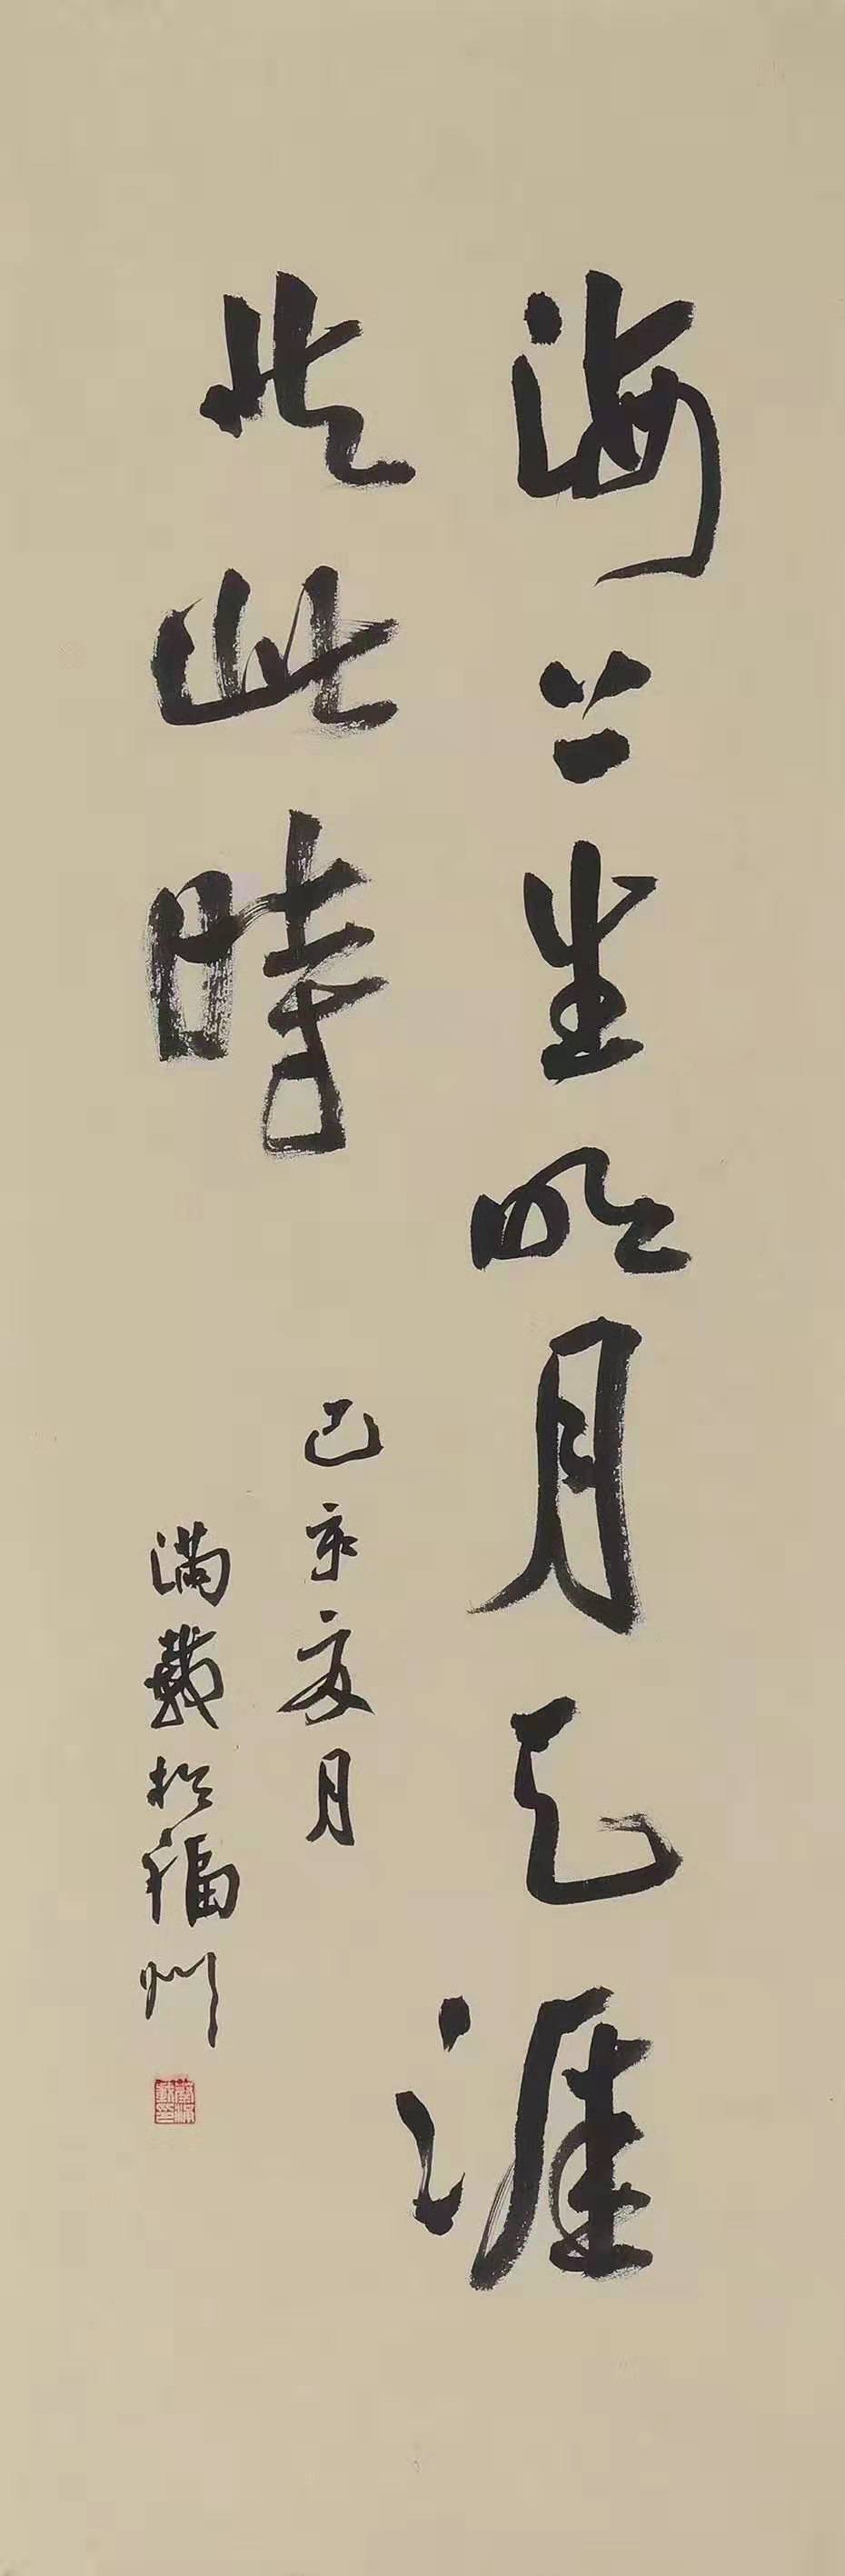 海上生明月天涯
共此時
己亥夏月
滿載於福州